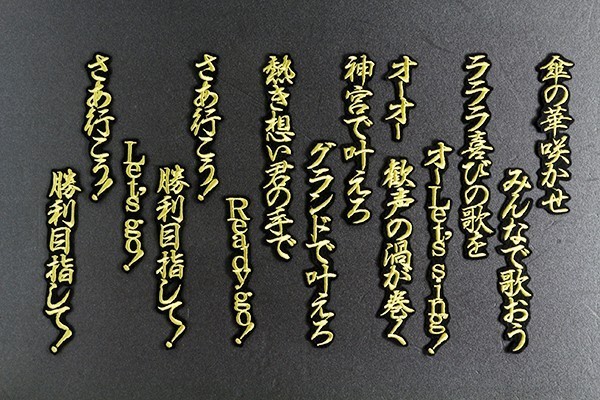 傘の華咲かせ
みんなで歌おう
ラララ喜びの歌を
オーLet's sing!
オーオー 歓声の渦が巻く
神宮で叶えろ
グランドで叶えろ
熱き想い君の手で
Ready go!
さあ行こう!
勝利目指して!
Let's go!
さあ行こう!
勝利目指して!